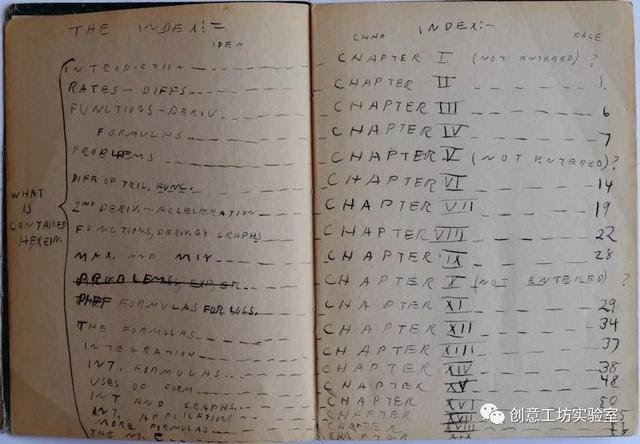 THE INDEX:=
IDEA
INTRODUCTION
RATES-DIFFS
FUNCTIONS-DERIV
FORMULAS
PROBLEMS
DIFF OF TRIG. FUNC.
2ND DERIV.-ACCELERATION
FUNCTIONS, DERIV. BY GRAPHS
MAX. AND MIN
PROBLEMS,
DIFF FORMULAS FOR LOGS.
THE FORMULAS
INTEGRATION
INT. FORMULAS
USES OF FORM
INT AND GRAPHS
INT. APPLICATIONS
MORE FORMULAS
WHAT
IS
CONTAINED
HEREIN.
INDEX:-
CHAP PAGE
CHAPTER I (NOT ENTERED) ?
CHAPTER II 1.
CHAPTER III 6
CHAPTER IV 7
CHAPTER V (NOT ENTERED)?
CHAPTER VI 14
CHAPTER VII 19
CHAPTER VIII 22
CHAPTER IX 28
CHAPTER X (NOT ENTERED) ?
CHAPTER XI 29
CHAPTER XII 34
CHAPTER XIII 37
CHAPTER XIV 38
CHAPTER XV 48
CHAPTER XVI 50
CHAPTER XVII
CHAPTER XVIII
CHAPTER XIX
创意工坊实验室